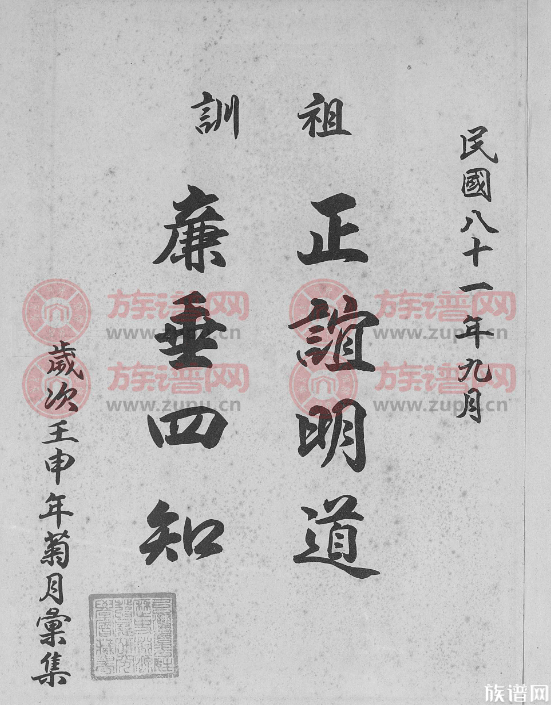 民國八十一年九月
祖訓
正誼明道
廉垂四知
歲次壬申年菊月彙集
族谱网
www.zupu.cn
族谱网
www.zupu.cn
族谱网
www.zupu.cn
族谱网
www.zupu.cn
族谱网